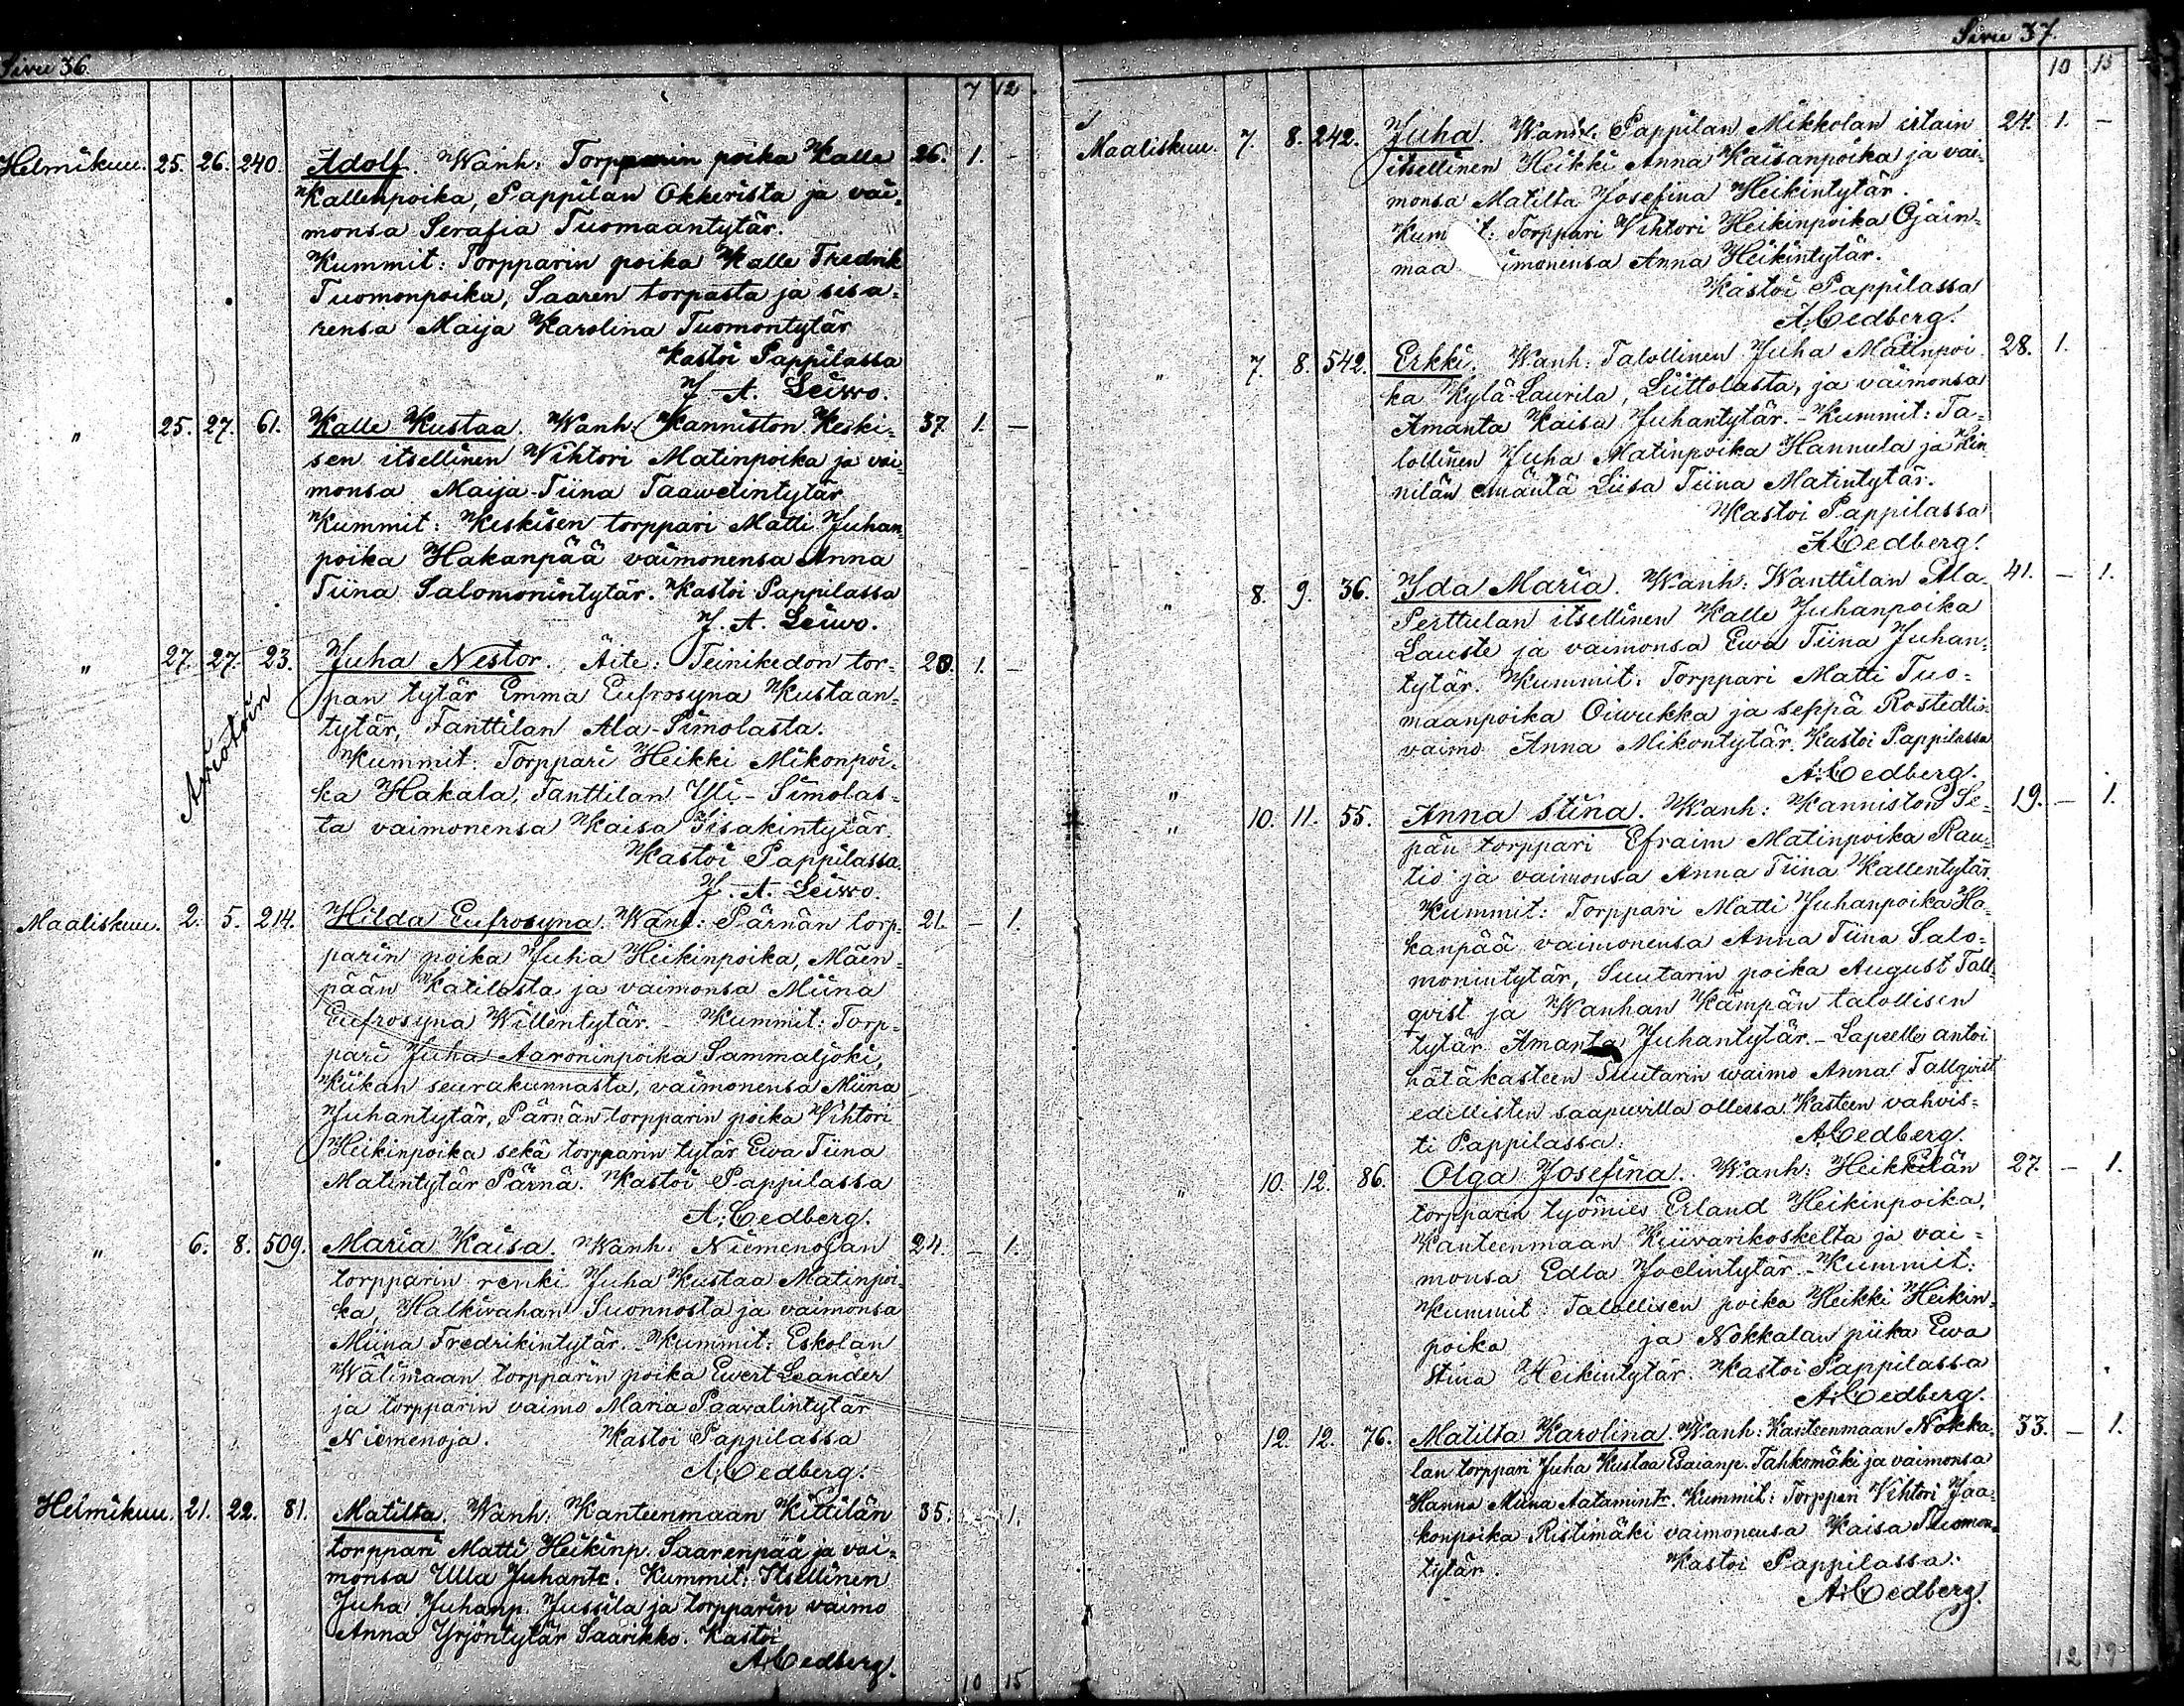 Sivu 36.
7 12
Helmikuu. 25. 26. 240. Adolf. Wanh: Torpparin poika Kalle 26. 1. -
Kallenpoika, Pappilan Okkerista ja vai=
monsa Serafia Tuomaantytär.
Kummit: Torpparin poika Kalle Fredrik
Tuomonpoika, Saaren torpasta ja sisa=
rensa Maija Karolina Tuomontytär
Kastoi Pappilassa
J. A. Leiwo.
" 25. 27. 61. Kalle Kustaa. Wanh: Kanniston Keski= 37 1. -
sen itsellinen Wihtori Matinpoika ja vai=
monsa Maija-Tiina Taawetintytär
Kummit: Keskisen torppari Matti Juhan=
poika Hakanpää vaimonensa Anna
Tiina Salomonintytär. Kastoi Pappilassa
J. A. Leiwo.
" 27. 27. 23. Juha Nestor. Äite: Teinikedon tor= 20. 1. -
Aviotoin
pan tytär Emma Eufrosyna Kustaan=
tytär, Fanttilan Ala-Simolasta.
Kummit: Torppari Heikki Mikonpoi=
ka Hakala, Fanttilan Yli-Simolas=
ta vaimonensa Kaisa Iisakintytär.
Kastoi Pappilassa.
J. A. Leiwo.
Maaliskuu. 2. 5. 214. Hilda Eufrosyna. Wanh: Pärnän torp= 21. - 1.
parin poika Juha Heikinpoika, Mäen=
pään Katilasta ja vaimonsa Miina
Eufrosyna Willentytär. - Kummit: Torp=
pari Juha Aaroninpoika Sammaljoki,
Kiikan seurakunnasta, vaimonensa Miina
Juhantytär, Pärnän torpparin poika Vihtori
Heikinpoika sekä torpparin tytär Ewa Tiina
Matintytär Pärnä. Kastoi Pappilassa
A. Cedberg.
" 6. 8. 509. Maria Kaisa. Wanh: Niemenojan 24. - 1.
torpparin renki Juha Kustaa Matinpoi=
ka, Halkivahan Suonnosta ja vaimonsa
Miina Fredrikintytär. - Kummit: Eskolan
Wälimaan torpparin poika Ewert Leander
ja torpparin vaimo Maria Paavalintytär
Niemenoja. Kastoi Pappilassa
A. Cedberg.
Helmikuu. 21. 22. 81. Matilta. Wanh: Kanteenmaan Kittilän 35. - 1.
torppari Matti Heikinp. Saarenpää ja vai=
monsa Ulla Juhantr. Kummit: Itsellinen
Juha Juhanp. Jussila ja torpparin vaimo
Anna Yrjöntytär Saarikko. Kastoi
A. Cedberg.
10 15
Sivu 37.
10 15
Maaliskuu. 7. 8. 242. Juha. Wanh: Pappilan Mikkolan irtain 24. 1. -
itsellinen Heikki Anna Kaisanpoika ja vai=
monsa Matilta Josefina Heikintytär.
Kum it: Torppari Vihtori Heikinpoika Ojain=
maa imonensa Anna Heikintytär.
Kastoi Pappilassa
A. Cedberg.
" 7. 8. 542. Erkki. Wanh: Talollinen Juha Matinpoi= 28. 1.
ka Kylä-Laurila, Liittolasta, ja vaimonsa
Amanta Kaisa Juhantytär. - Kummit: Ta=
lollinen Juha Matinpoika Hannula ja Hen
nilän emäntä Liisa Tiina Matintytär.
Kastoi Pappilassa
A. Cedberg.
" 8. 9. 36. Ida Maria. Wanh: Wanttilan Ala- 41. - 1.
Perttulan itsellinen Kalle Juhanpoika
Lauste ja vaimonsa Ewa Tiina Juhan=
tytär. Kummit: Torppari Matti Tuo=
maanpoika Oiwukka ja seppä Rostedtin
vaimo Anna Mikontytär. Kastoi Pappilassa
A. Cedberg.
"
" 10. 11. 55. Anna Stina. Wanh: Kanniston Se= 19. - 1.
pän torppari Efraim Matinpoika Rau=
tio ja vaimonsa Anna Tiina Kallentytär.
Kummit: Torppari Matti Juhanpoika Ha=
kanpää vaimonensa Anna Tiina Salo=
monintytär, Suutarin poika August Tall=
qvist ja Wanhan Kämpän talollisen
tytär Amanta Juhantytär. - Lapselle antoi
hätäkasteen Suutarin waimo Anna Tallqvist
edellisten saapuvilla ollessa. Kasteen vahvis=
ti Pappilassa. A. Cedberg.
" 10. 12. 86. Olga Josefina. Wanh: Heikkilän 27. - 1.
torpparin työmies Erland Heikinpoika,
Kanteenmaan Kiiwarikoskelta ja vai=
monsa Edla Joelintytär. - Kummit:
Kummit: Talollisen poika Heikki Heikin=
poika ja Nokkalan piika Ewa
Stina Heikintytär. Kastoi Pappilassa
A. Cedberg.
" 12. 12. 76. Matilta Karolina. Wanh: Kanteenmaan Nokka= 33. - 1.
lan torppari Juha Kustaa Esaianp. Tahkomäki ja vaimonsa
Hanna Miina Aatamintr. Kummit: Torppari Vihtori Jaa=
konpoika Ristimäki vaimonensa Kaisa Tuomon=
tytär. Kastoi Pappilassa.
A. Cedberg.
12 19